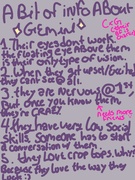 A Bit of info About
Gemini
CeGe
Being
1. Their eyes dont work
the floating eye Above them
is their only type of vision.
2. When they get upset/Excited
they cant see @ all.
3. they are nervous @ 1st
But once you know them
they're CRAZY
needs more
friends
4. they have very low social
skills. Someone has to start
a conversation w/ them.
5. they love crop tops. Why?
Because they love the way they
look :)